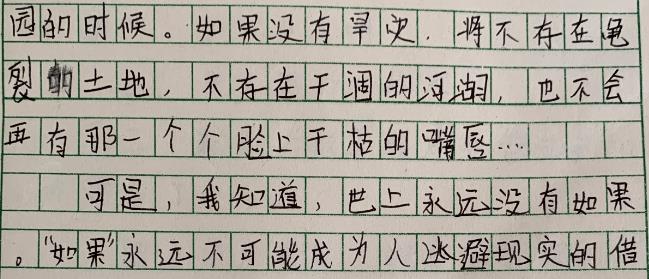 园的时候。如果没有旱灾，将不存在龟
裂的土地，不存在干涸的河湖，也不会
再有那一个个脸上干枯的嘴唇…
可是，我知道，世上永远没有如果
。“如果”永远不可能成为人逃避现实的借